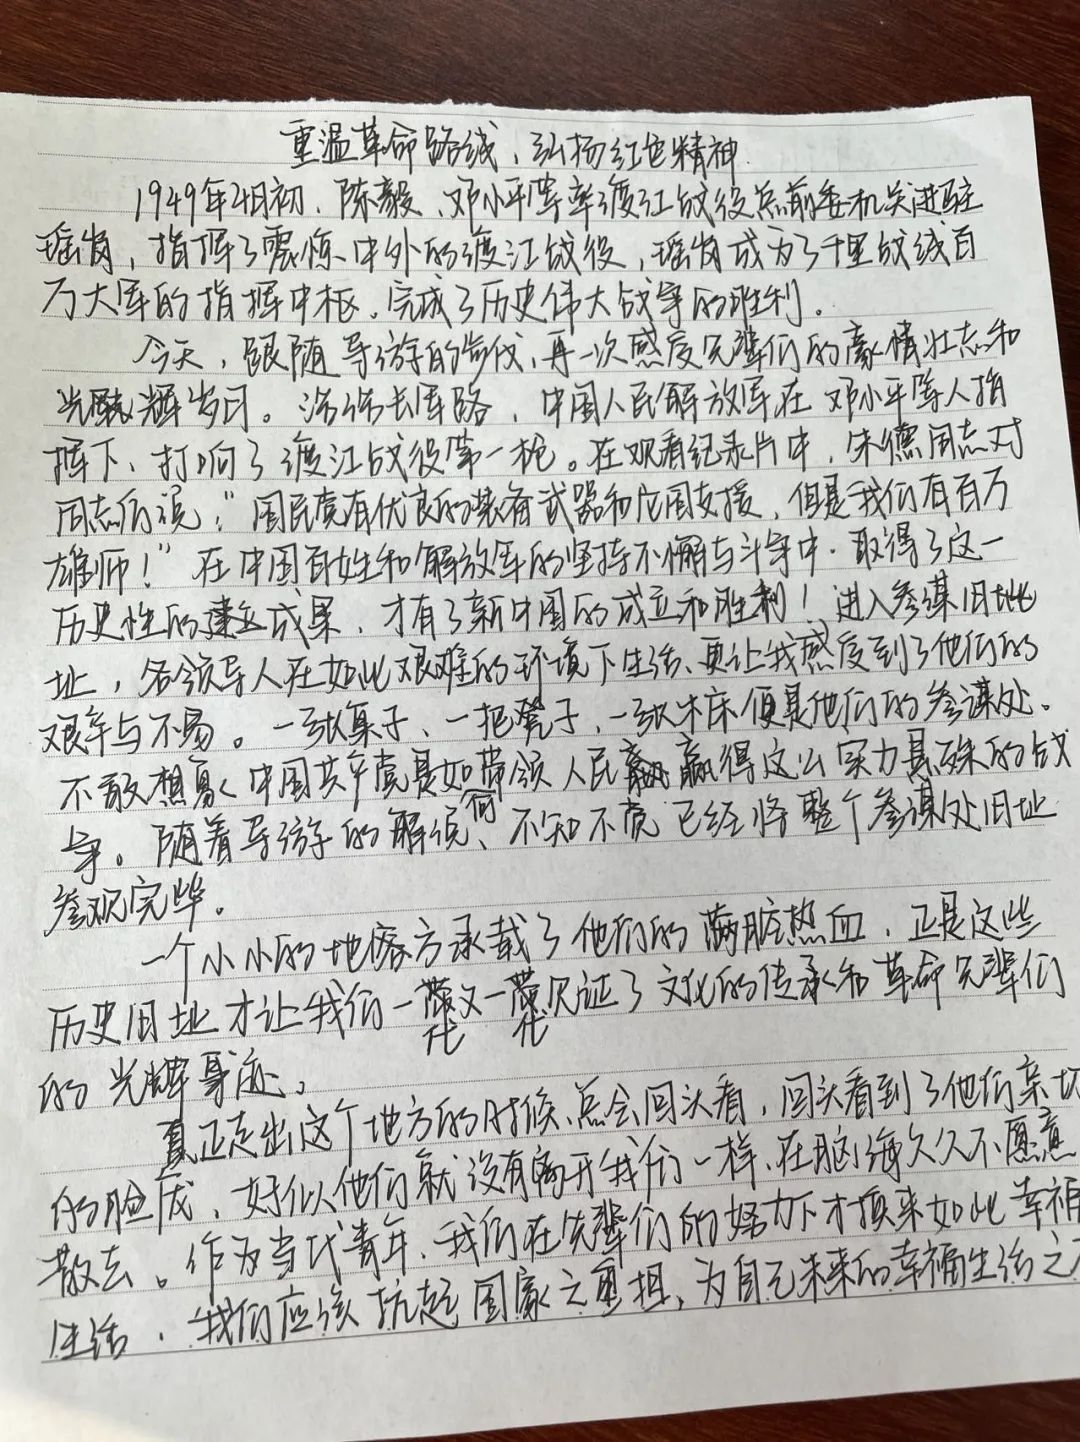 重温革命路线，弘扬红色精神
1949年4月初，陈毅、邓小平等率渡江战役总前委机关进驻
瑶岗，指挥了震惊中外的渡江战役，瑶岗成为了千里战线百
万大军的指挥中枢，完成了历史伟大战争的胜利。
今天，跟随导游的步伐，再一次感受先辈们的豪情壮志和
光辉岁月。浩浩长军路，中国人民解放军在邓小平等人指
挥下，打响了渡江战役第一枪。在观看纪录片中，朱德同志对
同志们说：“国民党有优良的装备武器和应国支援，但是我们有百万
雄师！”在中国百姓和解放军的坚持不懈与斗争中，取得了这一
历史性的建立成果，才有了新中国的成立和胜利！进入参谋旧地
址，各领导人在如此艰难的环境下生活，更让我感受到了他们的
艰辛与不易。一张桌子、一把凳子、一张木床便是他们的参谋处。
不敢想象中国共产党是如何带领人民赢得这么实力悬殊的战
争。随着导游的解说，不知不觉已经将整个参谋处旧址
参观完毕。
一个小小的地方承载了他们的满腔热血，正是这些
历史旧址才让我们一代又一代见证了文化的传承和革命先辈们
的光辉事迹。
真正走出这个地方的时候，总会回头看，回头看到了他们亲切
的脸庞，好似他们就没有离开我们一样，在脑海久久不愿意
散去。作为当代青年，我们在先辈们的努力下才换来如此幸福
生活，我们应该抗起国家之重担，为自己未来的幸福生活之